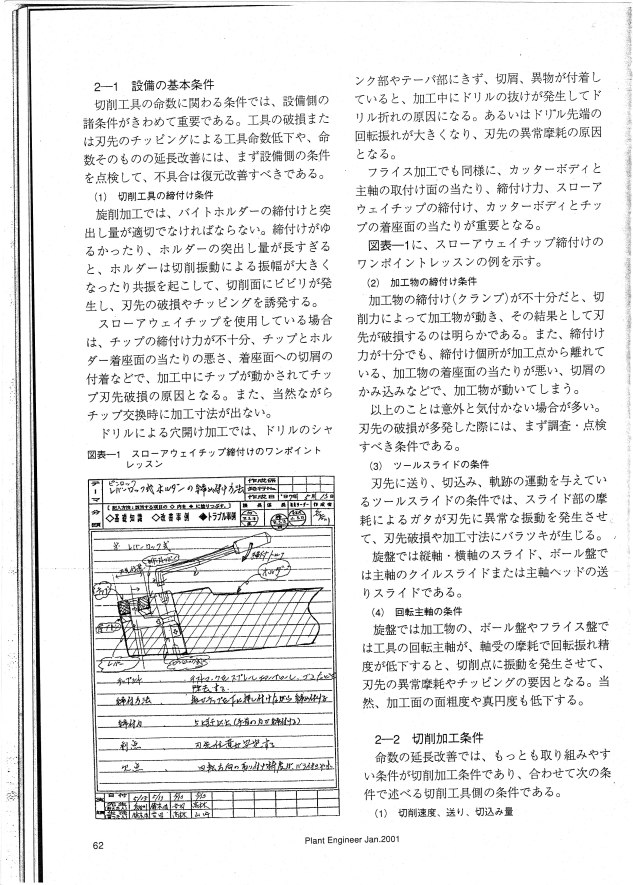 2—1 設備の基本条件
切削工具の命数に関わる条件では、設備側の
諸条件がきわめて重要である。工具の破損また
は刃先のチッピングによる工具命数低下や、命
数そのものの延長改善には、まず設備側の条件
を点検して、不具合は復元改善すべきである。
(1) 切削工具の締付け条件
旋削加工では、バイトホルダーの締付けと突
出し量が適切でなければならない。締付けがゆ
るかったり、ホルダーの突出し量が長すぎる
と、ホルダーは切削振動による振幅が大きく
なったり共振を起こして、切削面にビビリが発
生し、刃先の破損やチッピングを誘発する。
スローアウェイチップを使用している場合
は、チップの締付け力が不十分、チップとホル
ダー着座面の当たりの悪さ、着座面への切屑の
付着などで、加工中にチップが動かされてチッ
プ刃先破損の原因となる。また、当然ながら
チップ交換時に加工寸法が出ない。
ドリルによる穴開け加工では、ドリルのシャ
図表—1 スローアウェイチップ締付けのワンポイント
レッスン
テーマ
作成日
分類
◇基礎知識 ◇改善事例 ◆トラブル事例
レバーロック式
ホルダー
チップ
レバー
締付方法
締付力
利点
欠点
日付
62
ンク部やテーパ部にきず、切屑、異物が付着し
ていると、加工中にドリルの抜けが発生してド
リル折れの原因になる。あるいはドリル先端の
回転振れが大きくなり、刃先の異常摩耗の原因
となる。
フライス加工でも同様に、カッターボディと
主軸の取付け面の当たり、締付け力、スローア
ウェイチップの締付け、カッターボディとチッ
プの着座面の当たりが重要となる。
図表—1に、スローアウェイチップ締付けの
ワンポイントレッスンの例を示す。
(2) 加工物の締付け条件
加工物の締付け(クランプ)が不十分だと、切
削力によって加工物が動き、その結果として刃
先が破損するのは明らかである。また、締付け
力が十分でも、締付け個所が加工点から離れて
いる、加工物の着座面の当たりが悪い、切屑の
かみ込みなどで、加工物が動いてしまう。
以上のことは意外と気付かない場合が多い。
刃先の破損が多発した際には、まず調査・点検
すべき条件である。
(3) ツールスライドの条件
刃先に送り、切込み、軌跡の運動を与えてい
るツールスライドの条件では、スライド部の摩
耗によるガタが刃先に異常な振動を発生させ
て、刃先破損や加工寸法にバラツキが生じる。
旋盤では縦軸・横軸のスライド、ボール盤で
は主軸のクイルスライドまたは主軸ヘッドの送
りスライドである。
(4) 回転主軸の条件
旋盤では加工物の、ボール盤やフライス盤で
は工具の回転主軸が、軸受の摩耗で回転振れ精
度が低下すると、切削点に振動を発生させて、
刃先の異常摩耗やチッピングの要因となる。当
然、加工面の面粗度や真円度も低下する。
2—2 切削加工条件
命数の延長改善では、もっとも取り組みやす
い条件が切削加工条件であり、合わせて次の条
件で述べる切削工具側の条件である。
(1) 切削速度、送り、切込み量
Plant Engineer Jan.2001